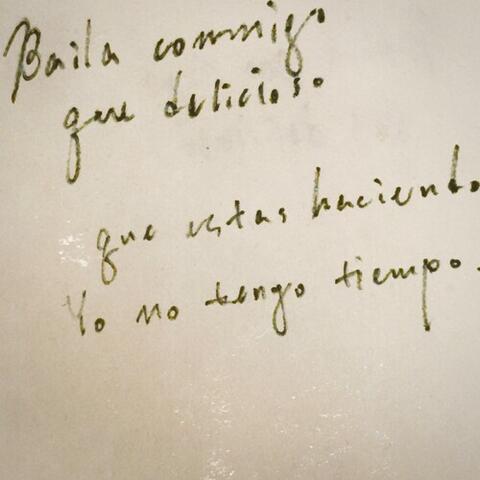 Baila commigo
que delicioso
que estas haciendo
Yo no tengo tiempo.